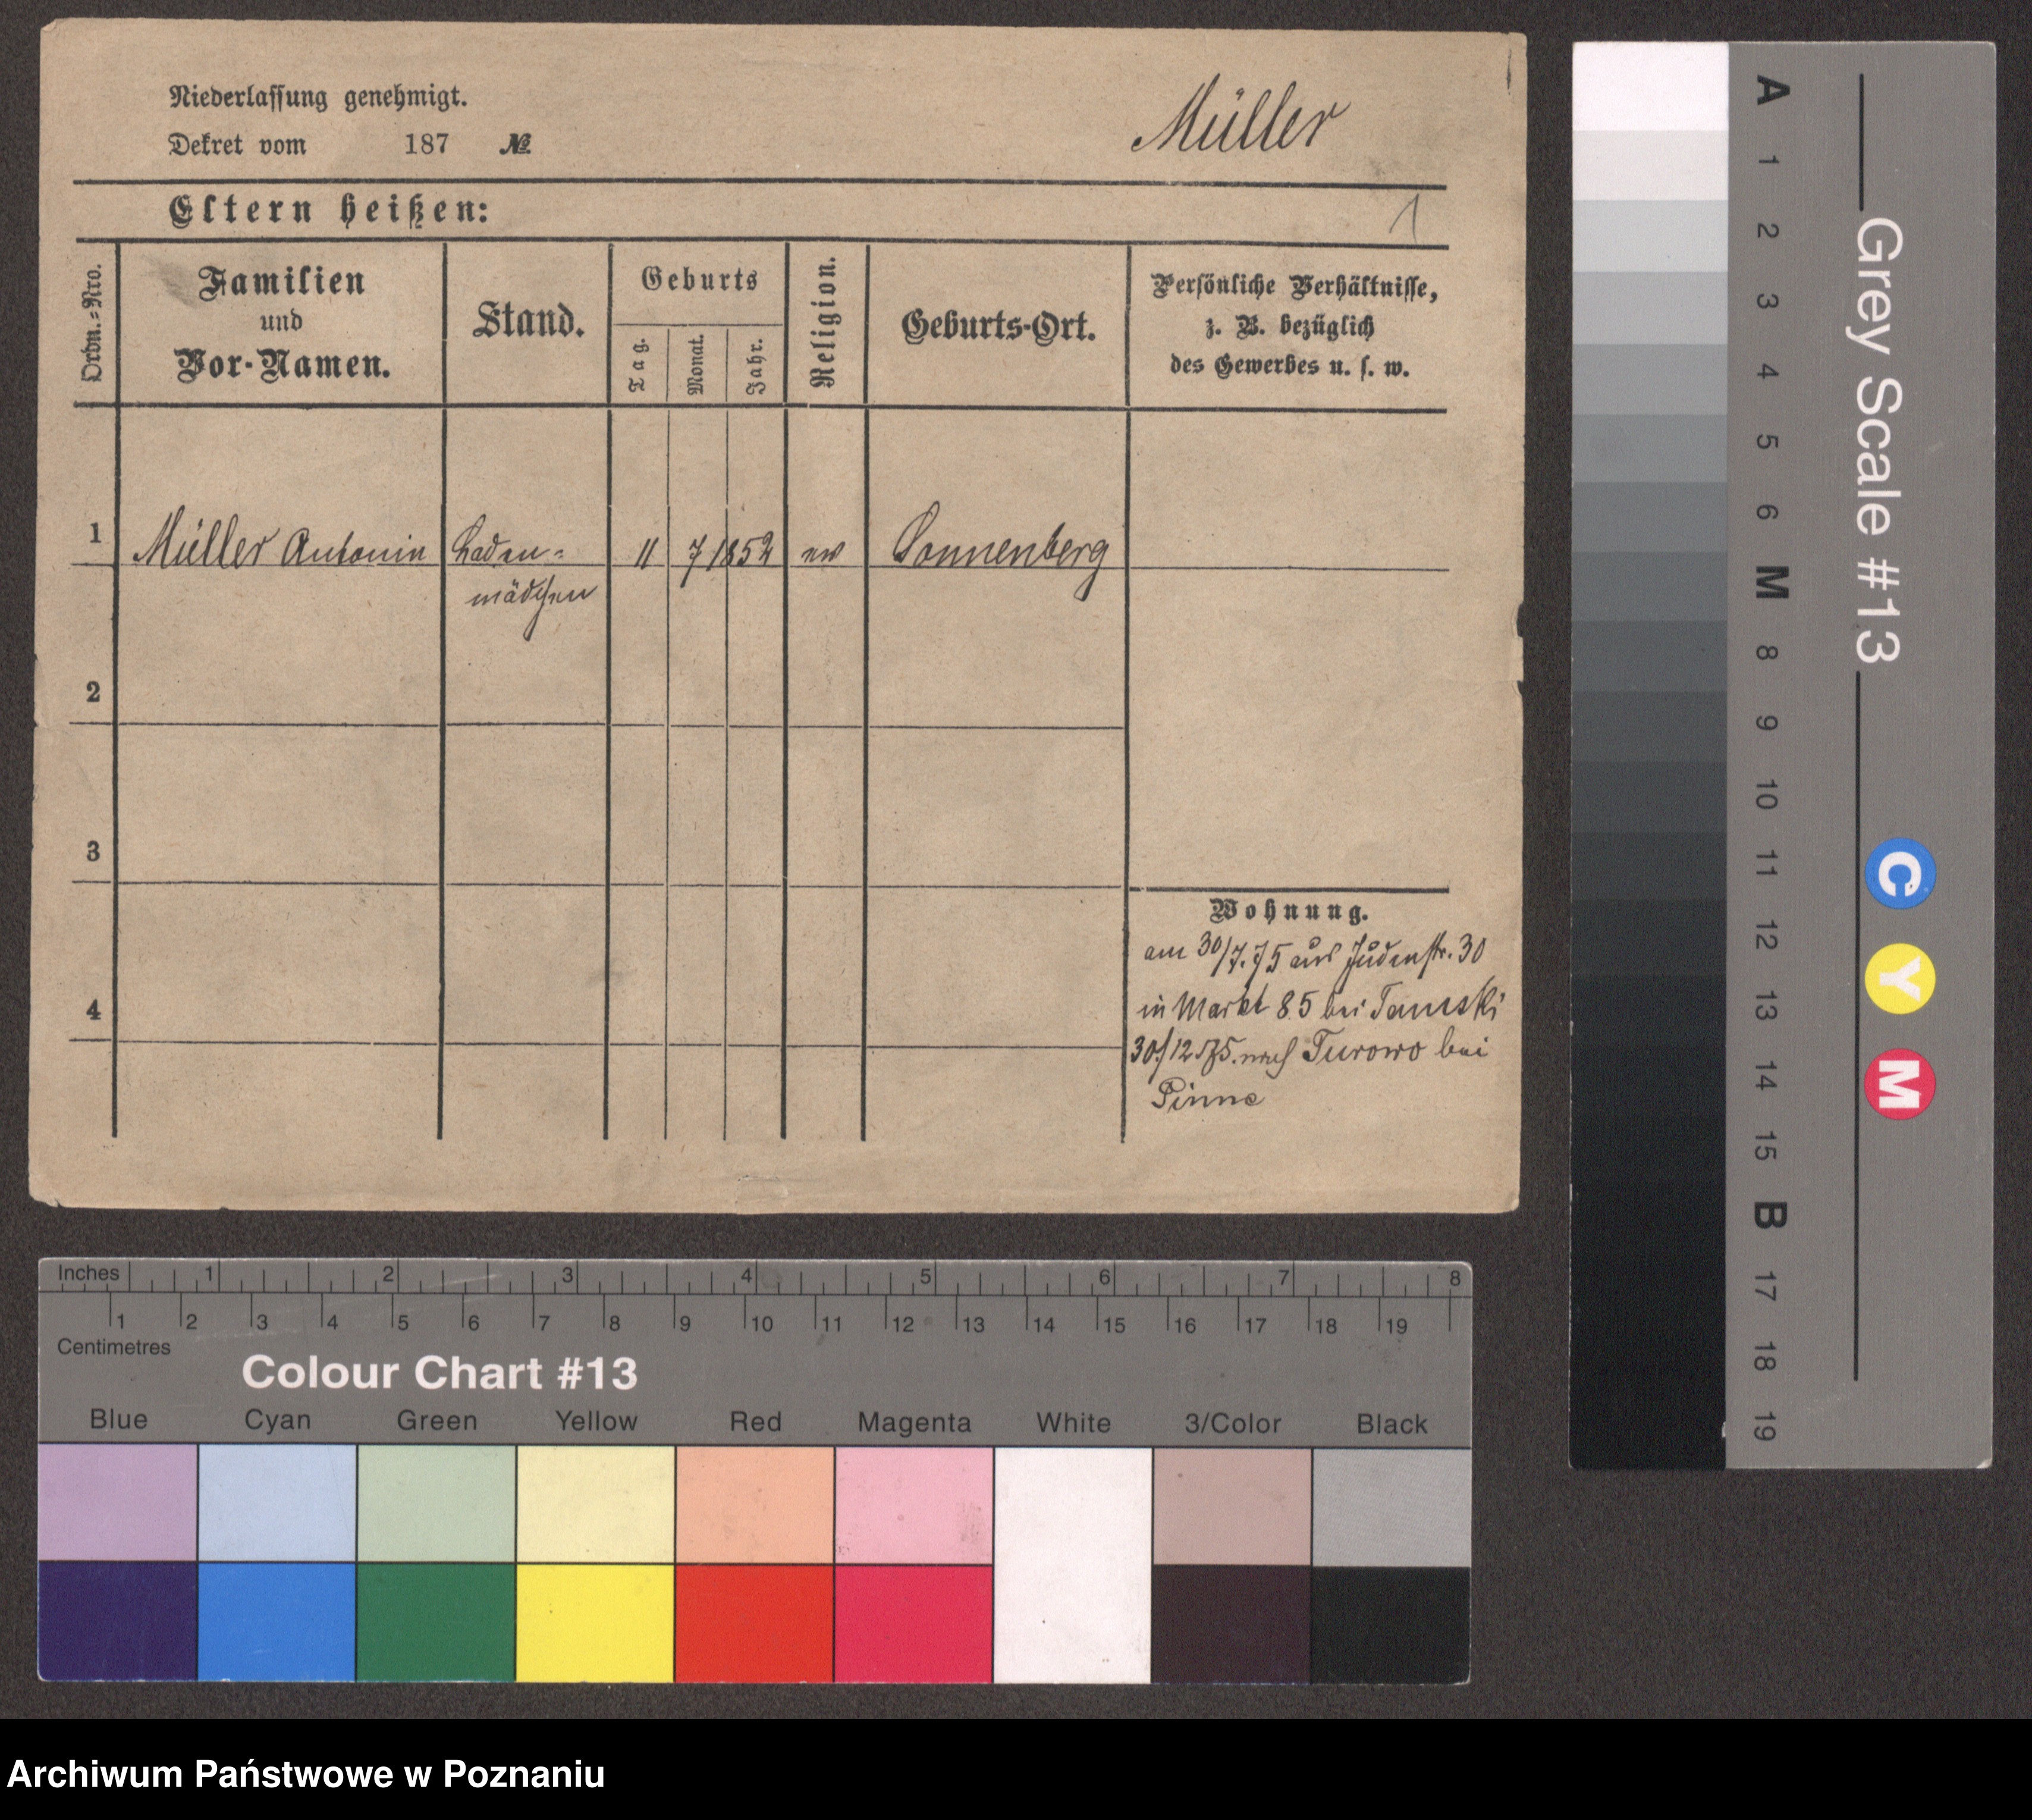 Niederlassung genehmigt.
Dekret vom 187 №
Müller
Eltern heißen:
1
Ordn.-Nro.
Familien
und
Vor-Namen.
Stand.
Geburts
Tag.
Monat.
Jahr.
Religion.
Geburts-Ort.
Persönliche Verhältnisse,
z. B. bezüglich
des Gewerbes u. s. w.
1 Müller Antonin Laden- 11 7 1852 ev Sonnenberg
mädchen
2
3
4
Wohnung.
am 30/7.75 aus Judenstr. 30
in Markt 85 bei Tamski
30/12.75. nach Turowo bei
Pinne
Inches 1 2 3 4 5 6 7 8
1 2 3 4 5 6 7 8 9 10 11 12 13 14 15 16 17 18 19
Centimetres
Colour Chart #13
Blue Cyan Green Yellow Red Magenta White 3/Color Black
Grey Scale #13
A 1 2 3 4 5 6 M 8 9 10 11 12 13 14 15 B 17 18 19
C Y M
Archiwum Państwowe w Poznaniu